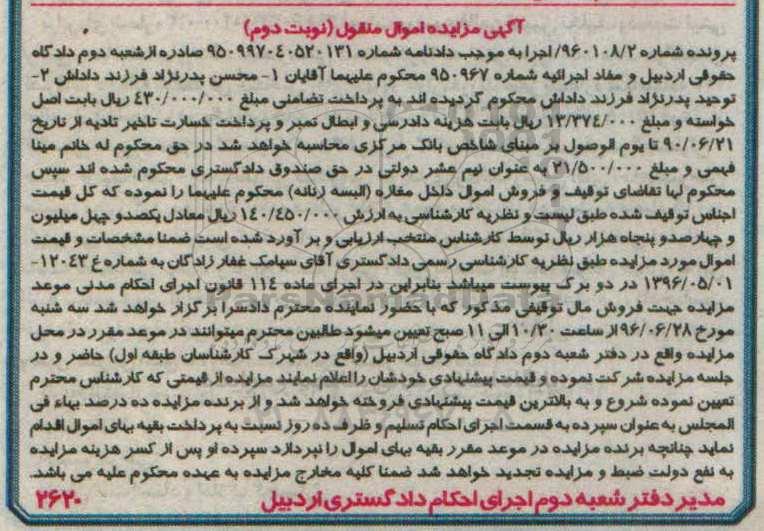 آگهی مزایده اموال منقول (نوبت دوم)
پرونده شماره ۹۶۰۱۰۸/۲/اجرا به موجب دادنامه شماره ۹۵۰۹۹۷۰۴۰۵۲۰۱۳۱ صادره ازشعبه دوم دادگاه
حقوقی اردبیل و مفاد اجرائیه شماره ۹۵۰۹۶۷ محکوم علیهما آقایان ۱- محسن پدرنژاد فرزند داداش ۲-
توحید پدرنژاد فرزند داداش محکوم گردیده اند به پرداخت تضامنی مبلغ ۴۳۰/۰۰۰/۰۰۰ ریال بابت اصل
خواسته و مبلغ ۱۳/۳۷۴/۰۰۰ ریال بابت هزینه دادرسی و ابطال تمبر و پرداخت خسارت تاخیر تادیه از تاریخ
۹۰/۰۶/۲۱ تا یوم الوصول بر مبنای شاخص بانک مرکزی محاسبه خواهد شد در حق محکوم له خانم مینا
فهمی و مبلغ ۲۱/۵۰۰/۰۰۰ به عنوان نیم عشر دولتی در حق صندوق دادگستری محکوم شده اند سپس
محکوم لها تقاضای توقیف و فروش اموال داخل مغازه (البسه زنانه) محکوم علیهما را نموده که کل قیمت
اجناس توقیف شده طبق لیست و نظریه کارشناسی به ارزش ۱۴۰/۴۵۰/۰۰۰ ریال معادل یکصدو چهل میلیون
و چهارصدو پنجاه هزار ریال توسط کارشناس منتخب ارزیابی و بر آورد شده است ضمنا مشخصات و قیمت
اموال مورد مزایده طبق نظریه کارشناسی رسمی دادگستری آقای سیامک غفارزادگان به شماره غ ۱۲۰۴۳-
۱۳۹۶/۰۵/۰۱ در دو برگ پیوست میباشد بنابراین در اجرای ماده ۱۱۴ قانون اجرای احکام مدنی موعد
مزایده جهت فروش مال توقیفی مذکور که با حضور نماینده محترم دادسرا برگزار خواهد شد سه شنبه
مورخ ۹۶/۰۶/۲۸ از ساعت ۱۰/۳۰ الی ۱۱ صبح تعیین میشود طالبین محترم میتوانند در موعد مقرر در محل
مزایده واقع در دفتر شعبه دوم دادگاه حقوقی اردبیل (واقع در شهرک کارشناسان طبقه اول) حاضر و در
جلسه مزایده شرکت نموده و قیمت پیشنهادی خودشان را اعلام نمایند مزایده از قیمتی که کارشناس محترم
تعیین نموده شروع و به بالاترین قیمت پیشنهادی فروخته خواهد شد و از برنده مزایده ده درصد بهاء فی
المجلس به عنوان سپرده به قسمت اجرای احکام تسلیم و ظرف ده روز نسبت به پرداخت بقیه بهای اموال اقدام
نماید چنانچه برنده مزایده در موعد مقرر بقیه بهای اموال را نپردازد سپرده او پس از کسر هزینه مزایده
به نفع دولت ضبط و مزایده تجدید خواهد شد ضمنا کلیه مخارج مزایده به عهده محکوم علیه می باشد.
مدیر دفتر شعبه دوم اجرای احکام دادگستری اردبیل
۲۶۲۰
ParsNamadData